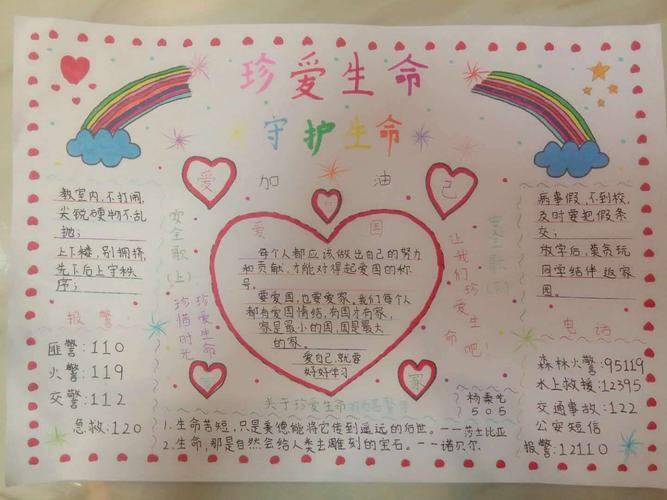 珍爱生命
守护生命
爱 加 油 己
教室内,不打闹,
尖锐硬物不乱
抛;
上下楼,别拥挤,
先下后上守秩
序;
安全歌(上)
珍爱生命
珍惜时光
爱 国
每个人都应该做出自己的努力
和贡献,才能对得起爱国的称
号。
要爱国,也要爱家。我们每个人
都有爱国情结,有国才有家,
家是最小的国,国是最大
的家。
爱自己,就要
好好学习
家
让我们珍爱生命吧!
安全歌(下)
病事假,不到校,
及时要把假条
交;
放学后,莫贪玩
同学结伴返家
园。
报警:
匪警:110
火警:119
交警:112
急救:120
电话
森林火警:95119
水上救援:12395
交通事故:122
公安短信
报警:12110
杨秦光
505
关于珍爱生命的名言警句
1.生命苦短,只是美德能将它传到遥远的后世。——莎士比亚
2.生命,那是自然会给人类去雕刻的宝石。——诺贝尔